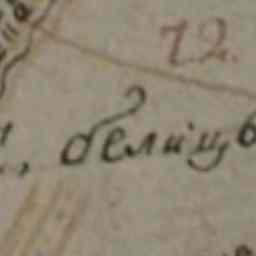 72.
белицъ